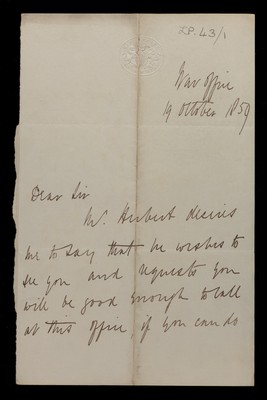 LP. 43/1
War Office
19 October 1859
Dear Sir
Mr. Herbert desires
me to say that he wishes to
see you and requests you
will be good enough to call
at this office, if you can do